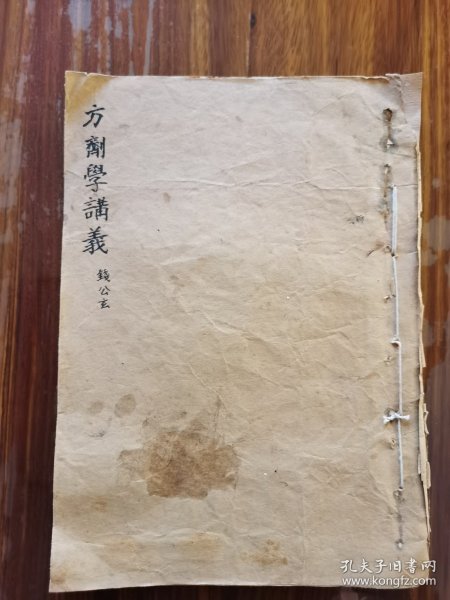 方劑學講義
錢公玄
孔夫子旧书网
www.kongfz.com